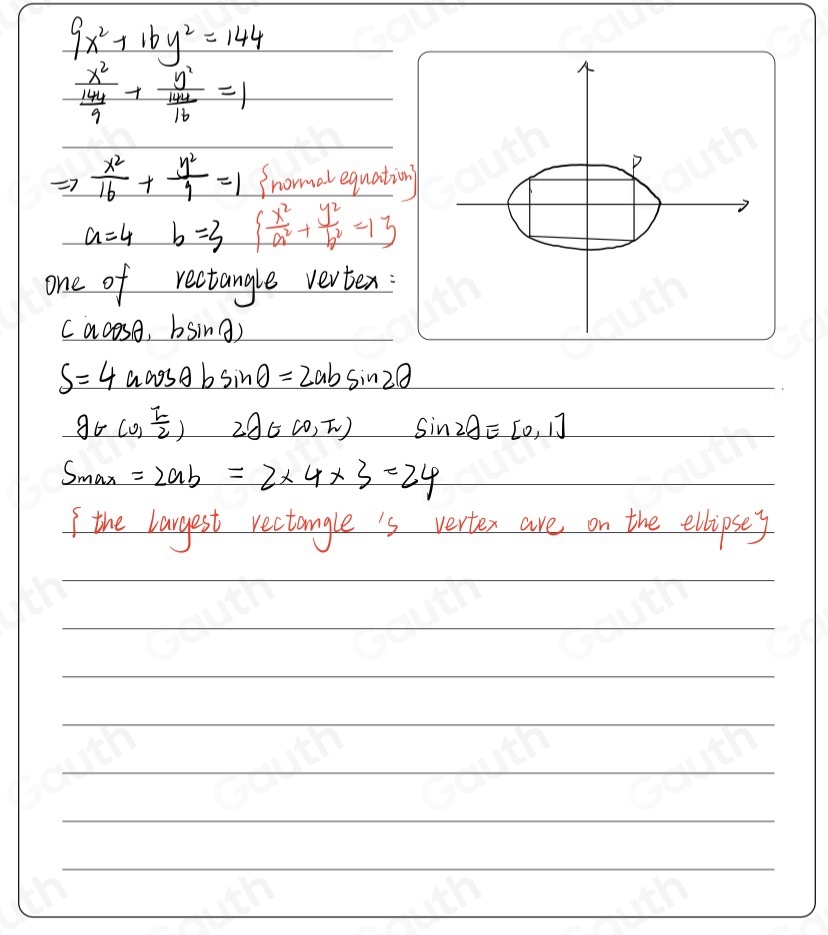 9x² + 16y² = 144
x²/(144/9) + y²/(144/16) = 1
⇒ x²/16 + y²/9 = 1 {normal equation}
a=4 b=3 {x²/a² + y²/b² = 1}
P
one of rectangle vertex :
(acosθ, bsinθ)
S = 4 acosθ bsinθ = 2ab sin2θ
θ∈(0, π/2) 2θ∈(0, π) sin2θ∈[0, 1]
Smax = 2ab = 2×4×3 = 24
{the largest rectangle 's vertex are on the ellipse}
Gauth